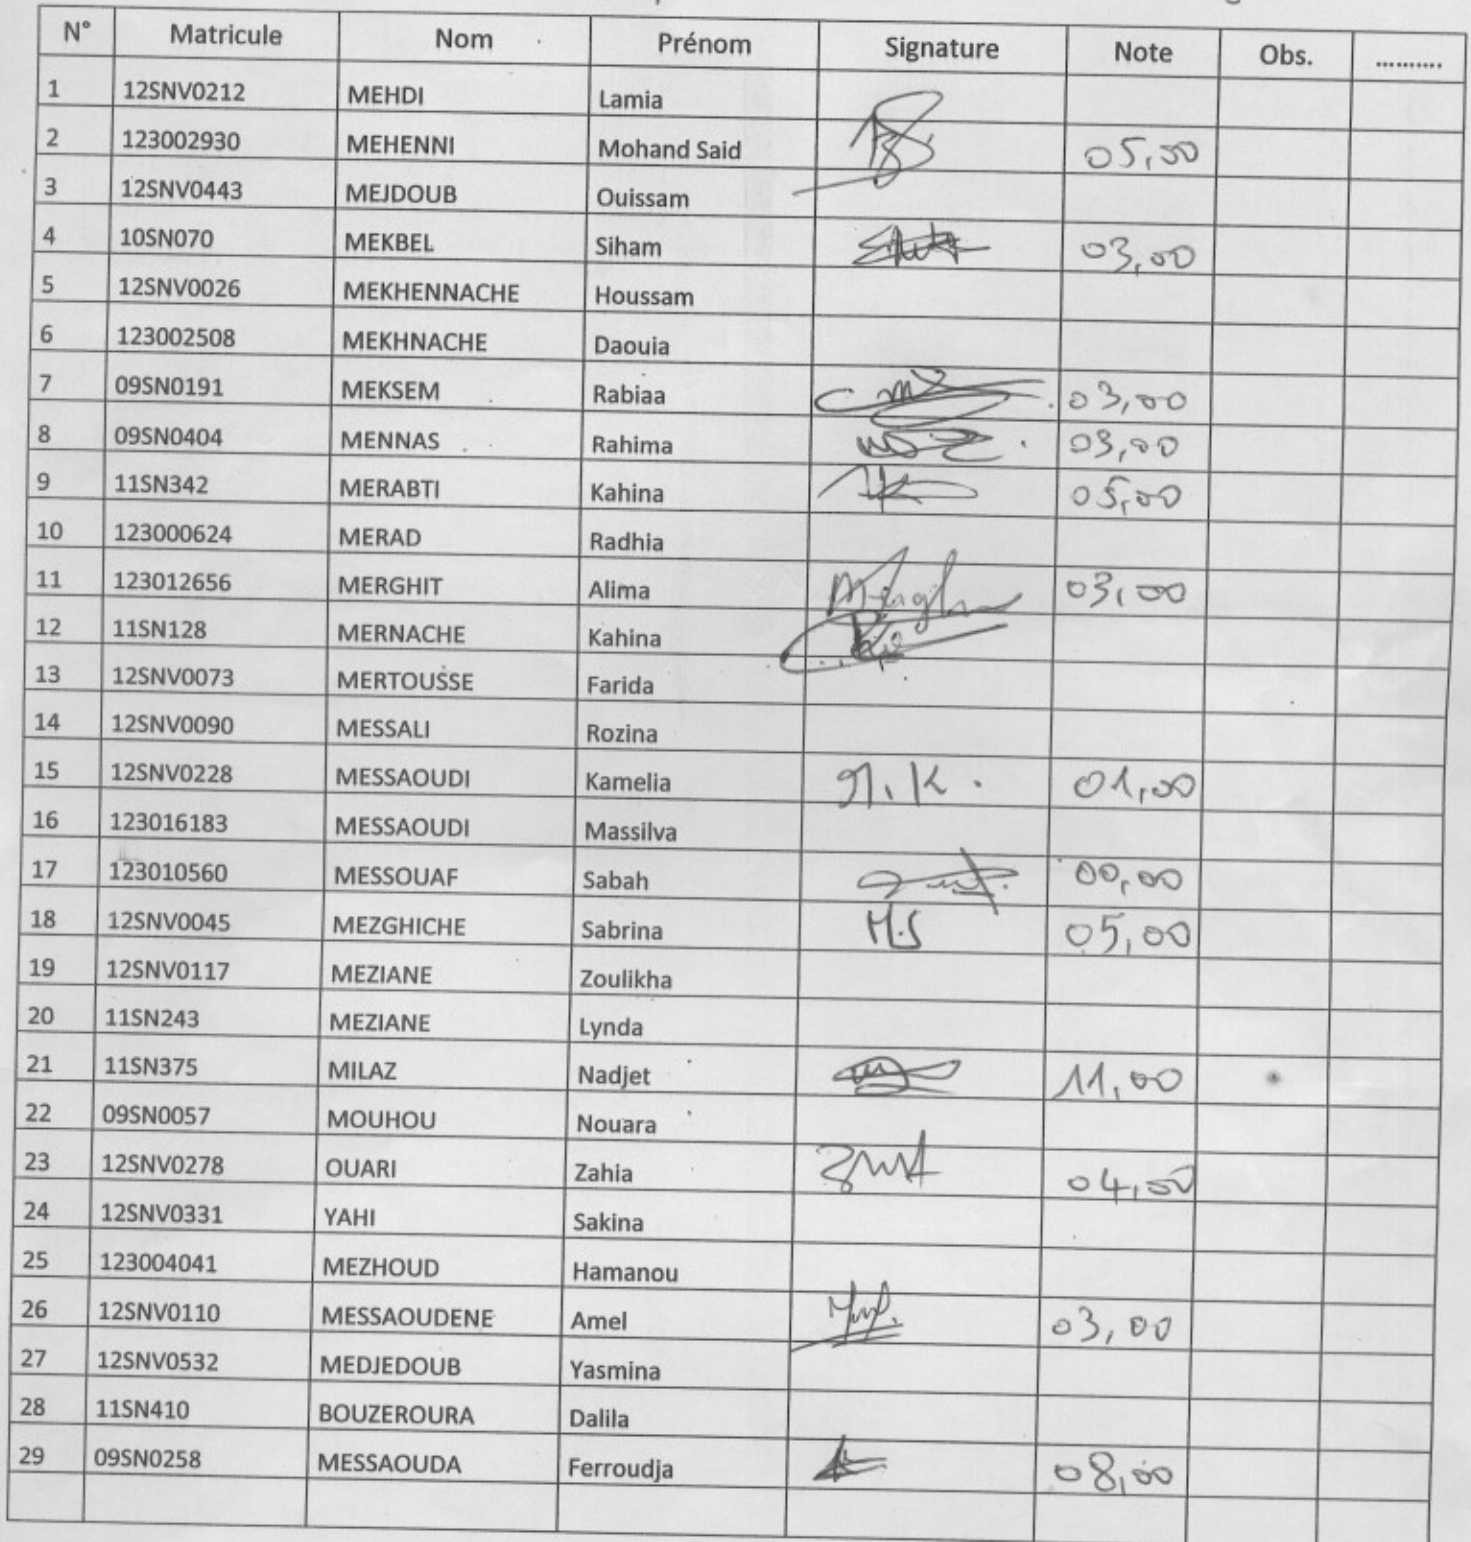 N° Matricule Nom Prénom Signature Note Obs. ..........
1 12SNV0212 MEHDI Lamia
2 123002930 MEHENNI Mohand Said 05,00
3 12SNV0443 MEJDOUB Ouissam
4 10SN070 MEKBEL Siham 03,00
5 12SNV0026 MEKHENNACHE Houssam
6 123002508 MEKHNACHE Daouia
7 09SN0191 MEKSEM Rabiaa 03,00
8 09SN0404 MENNAS Rahima 03,00
9 11SN342 MERABTI Kahina 05,00
10 123000624 MERAD Radhia
11 123012656 MERGHIT Alima 03,00
12 11SN128 MERNACHE Kahina
13 12SNV0073 MERTOUSSE Farida
14 12SNV0090 MESSALI Rozina
15 12SNV0228 MESSAOUDI Kamelia M.K. 01,00
16 123016183 MESSAOUDI Massilva
17 123010560 MESSOUAF Sabah 00,00
18 12SNV0045 MEZGHICHE Sabrina M.S 05,00
19 12SNV0117 MEZIANE Zoulikha
20 11SN243 MEZIANE Lynda
21 11SN375 MILAZ Nadjet 11,00
22 09SN0057 MOUHOU Nouara
23 12SNV0278 OUARI Zahia 04,50
24 12SNV0331 YAHI Sakina
25 123004041 MEZHOUD Hamanou
26 12SNV0110 MESSAOUDENE Amel 03,00
27 12SNV0532 MEDJEDOUB Yasmina
28 11SN410 BOUZEROURA Dalila
29 09SN0258 MESSAOUDA Ferroudja 08,00